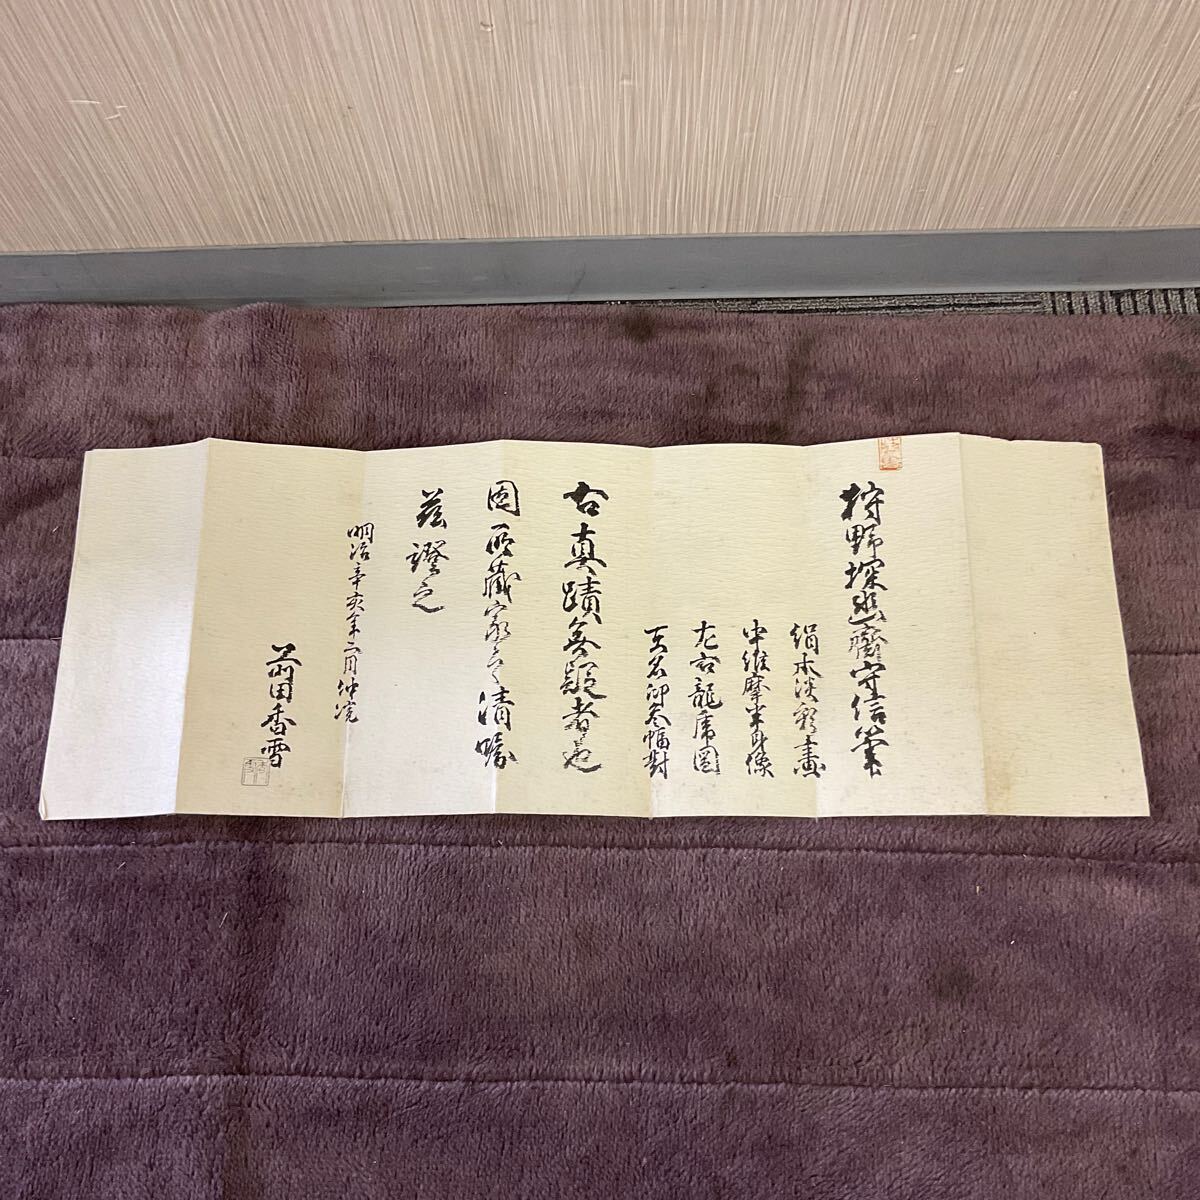 狩野探幽齋守信筆
絹本淡彩畫
中維摩半身像
左右龍虎図
各名印参幅対
右真蹟無疑者也
因所蔵家之清嘱
茲證之
明治辛亥年三月仲浣
前田香雪